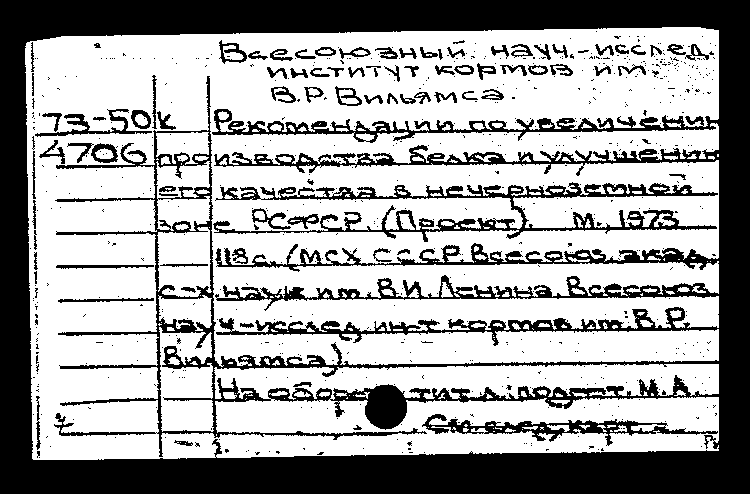 Всесоюзный науч.-исслед.
институт кормов им.
В.Р. Вильямса.
73-50к Рекомендации по увеличению
4706 производства белка и улучшению
его качества в нечерноземной
зоне РСФСР. (Проект). М., 1973
118 с. (МСХ СССР. Всесоюз. акад.
с-х. наук им. В.И. Ленина. Всесоюз.
науч-исслед. ин-т кормов им. В.Р.
Вильямса).
На оборо тит. л.: подгот. М.А.
См. след. карт.